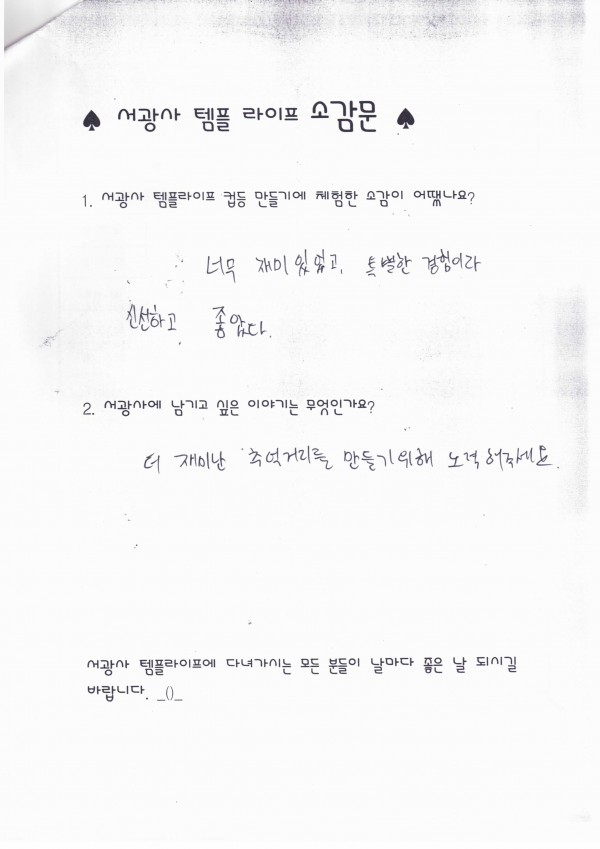 ♠ 서광사 템플 라이프 소감문 ♠
1. 서광사 템플라이프 컵등 만들기에 체험한 소감이 어땠나요?
너무 재미있었고, 특별한 경험이라
신선하고 좋았다.
2. 서광사에 남기고 싶은 이야기는 무엇인가요?
더 재미난 추억거리를 만들기위해 노력해주세요.
서광사 템플라이프에 다녀가시는 모든 분들이 날마다 좋은 날 되시길
바랍니다. _()_